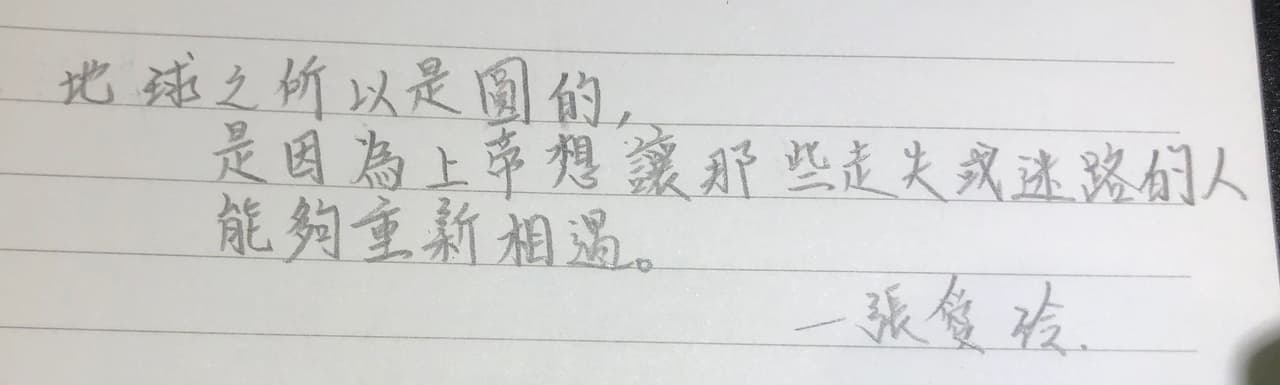 地球之所以是圓的,
是因為上帝想讓那些走失或迷路的人
能夠重新相遇。
—張愛玲.